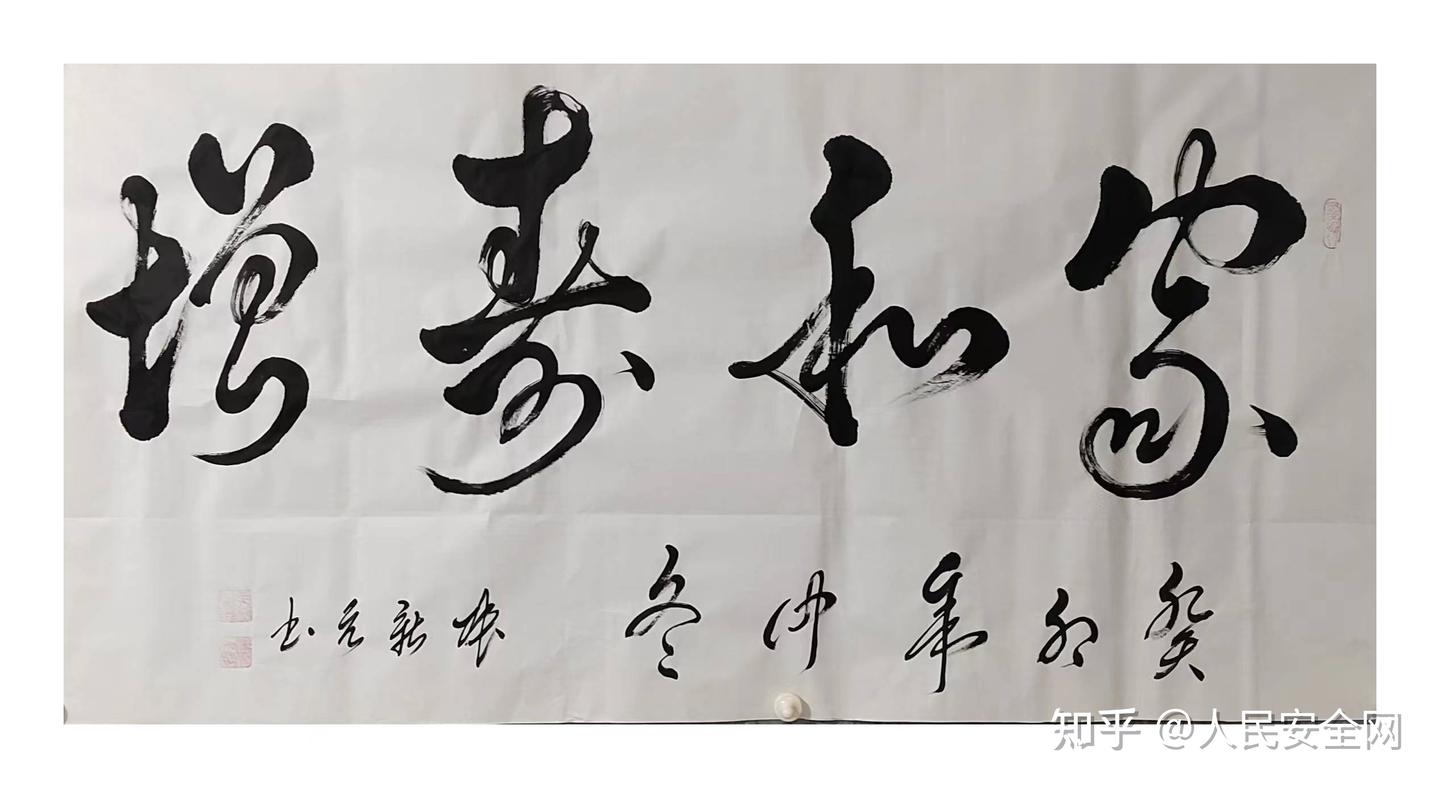 家和寿增
癸卯年仲冬
新元书
知乎 @人民安全网